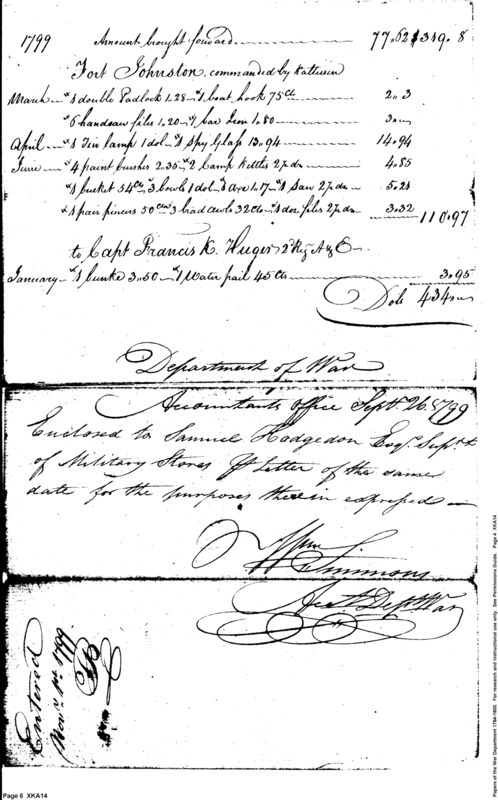 1799 Amount brought forward 77.62 $319.8
Fort Johnston, commanded by Kalteisen
March " 1 double Padlock 1.28 " 1 boat hook 75 Cts 2 " 3
" 6 handsaw files 1.20 " 1 bar Iron 1.80 3 " "
April " 1 Tin lamp 1 dol " 1 Spy Glass 13.94 14.94
June " 4 paint brushes 2.35 " 2 Camp Kettles 2 7 do 4.85
" 1 bucket 54 Cts " 3 bowls 1 dol " 1 axe 1.17 " 1 Saw 2 7 do 5.21
" 1 pair pincers 50 Cents " 3 brad awls 32 Cts " 1 doz files 2 7 do 3.32 110.97
to Capt Francis K. Huger 2d Reg A & E
January " 1 bunk 3 " 50 " 1 Water pail 45 Cts 3.95
Dols 434 " "
Department of War
Accountants office Septr. 26. 1799
Enclosed to Samuel Hodgedon Esqr. Supt.
of Military Stores Letter of the same
date for the purposes therein expressed
Wm Simmons
Acct. Dept War
Entered
Novr. 1st. 1799
Page 6 XKA14
Papers of the War Department 1784-1800. For research and instructional use only. See Permissions Guide. Page 4 XKA14